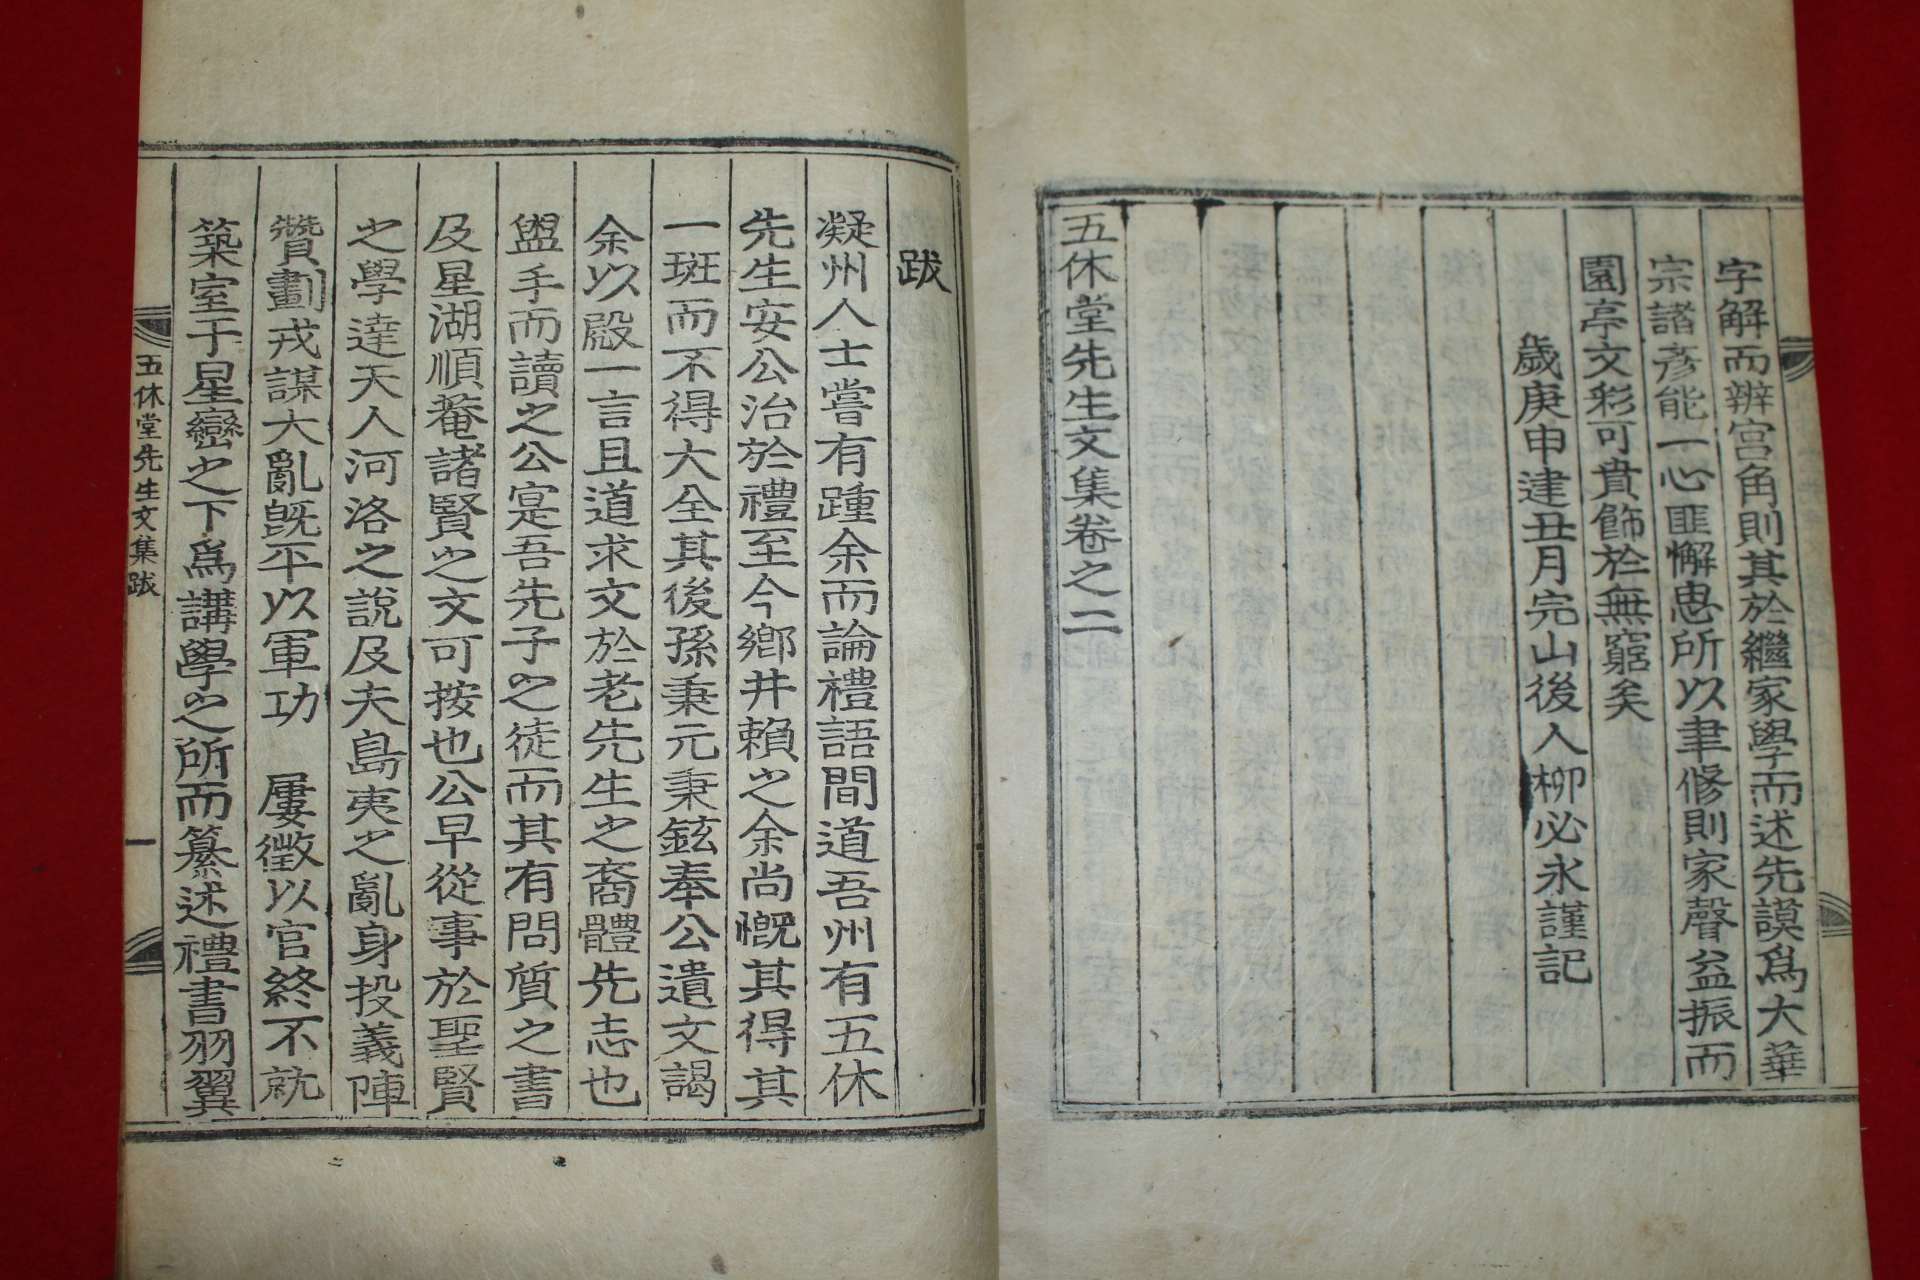 字解而辨宮角則其於繼家學而述先謨爲大華
宗諸彥能一心匪懈惠所以聿修則家聲益振而
園亭文彩可賁飾於無窮矣
歲庚申建丑月完山後人柳必永謹記
五休堂先生文集卷之二
跋
凝州人士嘗有踵余而論禮語間道吾州有五休
先生安公治於禮至今鄉井賴之余尚慨其得其
一斑而不得大全其後孫秉元秉鉉奉公遺文謁
余以殿一言且道求文於老先生之裔體先志也
盥手而讀之公寔吾先子之徒而其有問質之書
及星湖順菴諸賢之文可按也公早從事於聖賢
之學達天人河洛之說及夫島夷之亂身投義陣
贊劃戎謀大亂旣平以軍功 屢徵以官終不就
築室于星巒之下爲講學之所而纂述禮書羽翼
五休堂先生文集跋 一